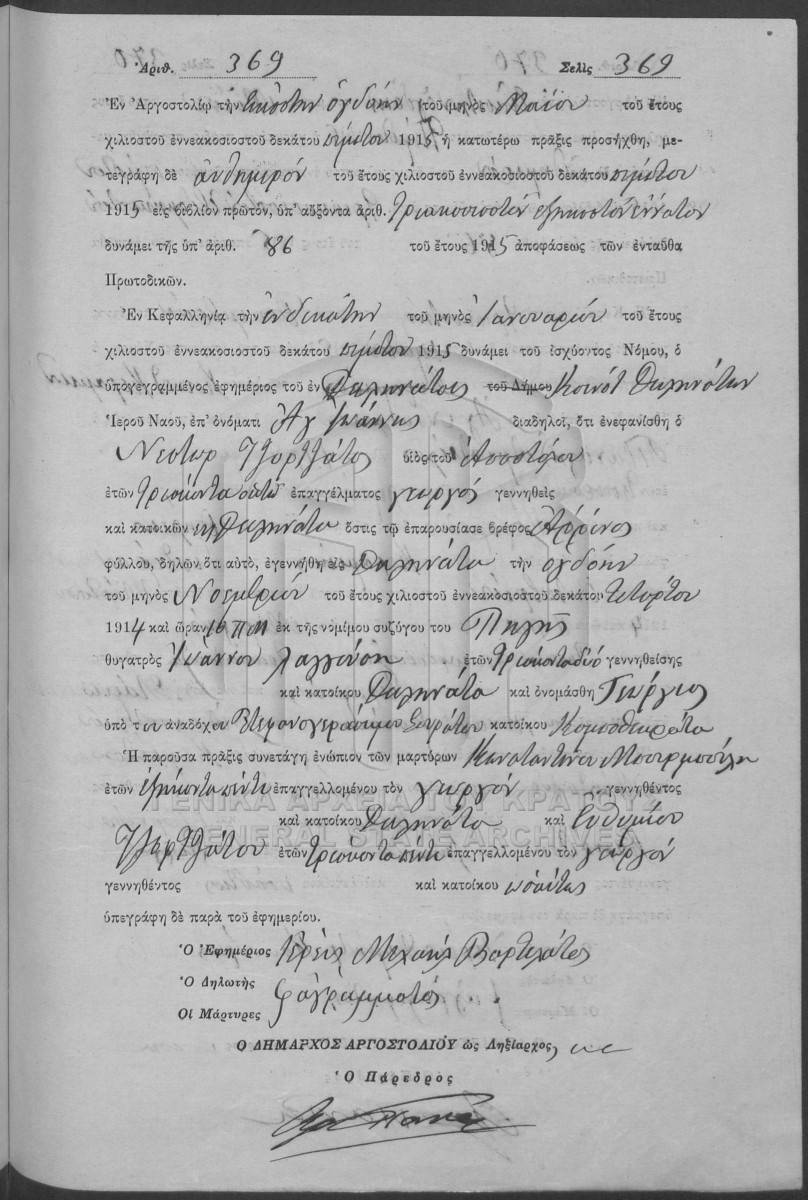 Ἀριθ. 369 Σελὶς 369
Ἐν Ἀργοστολίῳ τὴν εἰκοστὴν ὀγδόην τοῦ μηνὸς Μαΐου τοῦ ἔτους
χιλιοστοῦ ἐννεακοσιοστοῦ δεκάτου πέμπτου 1915 ἡ κατωτέρω πρᾶξις προσήχθη, με-
τεγράφη δὲ αὐθημερόν τοῦ ἔτους χιλιοστοῦ ἐννεακοσιοστοῦ δεκάτου πέμπτου
1915 εἰς βιβλίον πρῶτον, ὑπ' αὔξοντα ἀριθ. τριακοσιοστὸν ἑξηκοστὸν ἔννατον
δυνάμει τῆς ὑπ' ἀριθ. 86 τοῦ ἔτους 1915 ἀποφάσεως τῶν ἐνταῦθα
Πρωτοδικῶν.
Ἐν Κεφαλληνίᾳ τὴν ἑνδεκάτην τοῦ μηνὸς Ἰανουαρίου τοῦ ἔτους
χιλιοστοῦ ἐννεακοσιοστοῦ δεκάτου πέμπτου 1915 δυνάμει τοῦ ἰσχύοντος Νόμου, ὁ
ὑπογεγραμμένος ἐφημέριος τοῦ ἐν Διλινάτοις τοῦ Δήμου Κοινότ Διλινάτων
Ἱεροῦ Ναοῦ, ἐπ' ὀνόματι Ἁγ Ἰωάννης διαδηλοῖ, ὅτι ἐνεφανίσθη ὁ
Νέστωρ Τζωρτζᾶτος υἱὸς τοῦ Ἀποστόλου
ἐτῶν τριάκοντα ὀκτώ ἐπαγγέλματος γεωργός γεννηθεὶς
καὶ κατοικῶν Διλινάτα ὅστις τῷ ἐπαρουσίασε βρέφος Ἄρρενος
φύλλου, δηλῶν ὅτι αὐτὸ, ἐγεννήθη εἰς Διλινάτα τὴν ὀγδόην
τοῦ μηνὸς Νοεμβρίου τοῦ ἔτους χιλιοστοῦ ἐννεακοσιοστοῦ δεκάτου τετάρτου
1914 καὶ ὥραν 10 ΠΜ ἐκ τῆς νομίμου συζύγου του Πηγῆς
θυγατρὸς Ἰωάννου ἐτῶν τριάκοντα δύο γεννηθείσης
καὶ κατοίκου Διλινάτα καὶ ὀνομάσθη Γεώργιος
ὑπὸ τοῦ ἀναδόχου κατοίκου Κομποθεκράτα
Ἡ παροῦσα πρᾶξις συνετάγη ἐνώπιον τῶν μαρτύρων Κωνσταντίνου
ἐτῶν ἑξήκοντα πέντε ἐπαγγελλομένου τὸν γεωργόν γεννηθέντος
καὶ κατοίκου Διλινάτα καὶ Εὐθυμίου
Τζωρτζάτου ἐτῶν τριάκοντα πέντε ἐπαγγελλομένου τὸν γεωργόν
γεννηθέντος καὶ κατοίκου ὡσαύτως
ὑπεγράφη δὲ παρὰ τοῦ ἐφημερίου.
Ὁ Ἐφημέριος Ἱερεὺς Μιχαὴλ
Ὁ Δηλωτὴς ἀγράμματος
Οἱ Μάρτυρες
Ὁ ΔΗΜΑΡΧΟΣ ΑΡΓΟΣΤΟΛΙΟΥ ὡς Ληξίαρχος,
Ὁ Πάρεδρος
ΓΕΝΙΚΑ ΑΡΧΕΙΑ ΤΟΥ ΚΡΑΤΟΥΣ
GENERAL STATE ARCHIVES